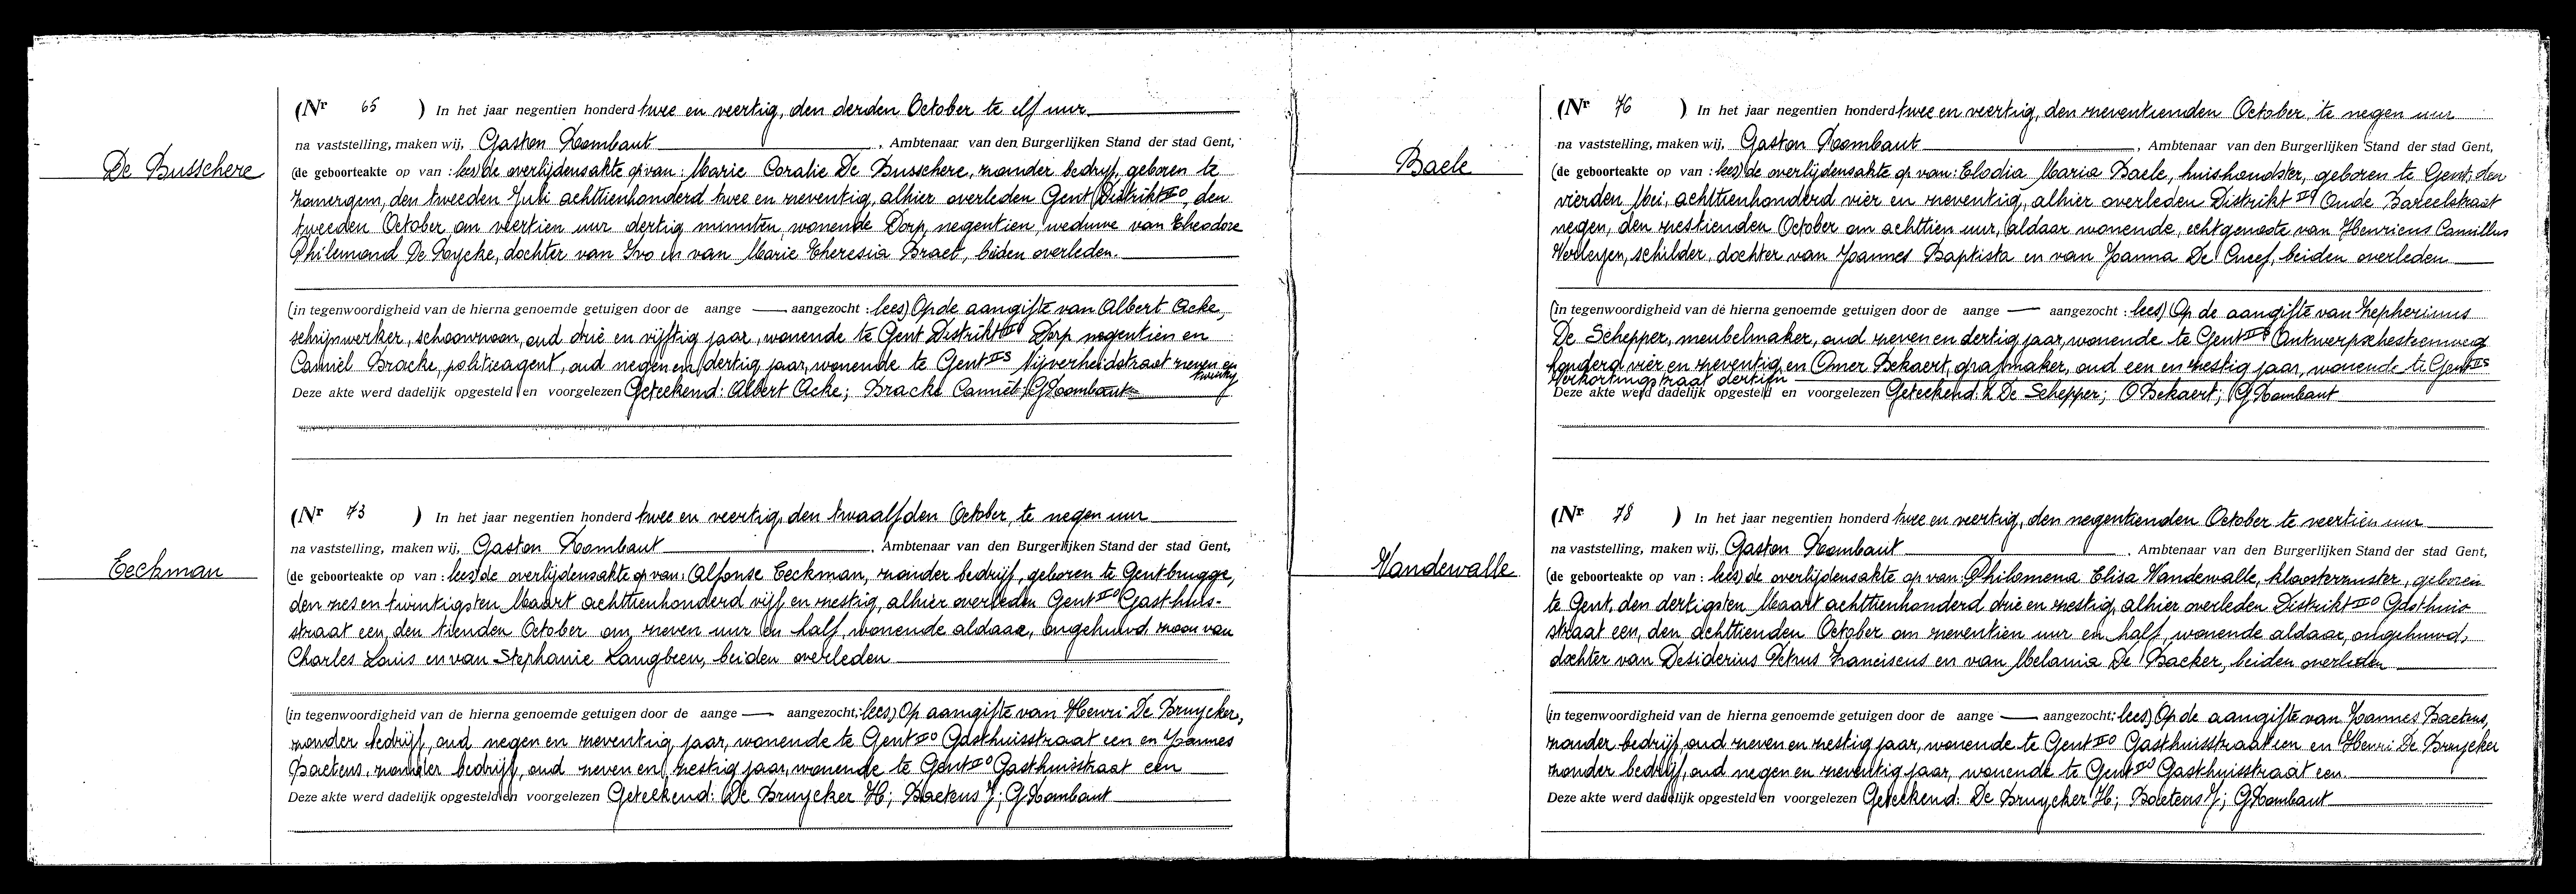 De Busschere
(Nr 65 ) In het jaar negentien honderd twee en veertig, den derden October te elf uur
na vaststelling, maken wij, Gaston Rombaut , Ambtenaar van den Burgerlijken Stand der stad Gent,
(de geboorteakte op van : lees) de overlijdensakte op van : Marie Coralie De Busschere, zonder bedrijf, geboren te
Zomergem, den tweeden Juli achttienhonderd twee en zeventig, alhier overleden Gent Distrikt IIO, den
tweeden October om veertien uur dertig minuten, wonende Dorp, negentien, weduwe van Theodore
Philemond De Rycke, dochter van Ivo en van Marie Theresia Braet, beiden overleden.
(in tegenwoordigheid van de hierna genoemde getuigen door de aange — aangezocht : lees) Op de aangifte van Albert Acke,
schrijnwerker, schoonzoon, oud drie en vijftig jaar, wonende te Gent Distrikt IIO Dorp negentien en
Camiel Bracke, politieagent, oud negen en dertig jaar, wonende te Gent IIS Nijverheidstraat zeven en
twintig
Deze akte werd dadelijk opgesteld en voorgelezen Geteekend: Albert Acke; Bracke Camiel; G Rombaut
Eeckman
(Nr 73 ) In het jaar negentien honderd twee en veertig, den twaalfden October, te negen uur
na vaststelling, maken wij, Gaston Rombaut , Ambtenaar van den Burgerlijken Stand der stad Gent,
(de geboorteakte op van : lees) de overlijdensakte op van : Alfonse Eeckman, zonder bedrijf, geboren te Gentbrugge,
den zes en twintigsten Maart achttienhonderd vijf en zestig, alhier overleden Gent IIO Gasthuis-
straat een, den tienden October om zeven uur en half, wonende aldaar, ongehuwd zoon van
Charles Louis en van Stephanie Langbeen, beiden overleden
(in tegenwoordigheid van de hierna genoemde getuigen door de aange — aangezocht : lees) Op aangifte van Henri De Bruycker,
zonder bedrijf, oud negen en zeventig jaar, wonende te Gent IIO Gasthuisstraat een en Joannes
Baetens, zonder bedrijf, oud zeven en zestig jaar, wonende te Gent IIO Gasthuisstraat een
Deze akte werd dadelijk opgesteld en voorgelezen Geteekend: De Bruycker H; Baetens J; G Rombaut
Baele
(Nr 76 ) In het jaar negentien honderd twee en veertig, den zeventienden October, te negen uur
na vaststelling, maken wij, Gaston Rombaut , Ambtenaar van den Burgerlijken Stand der stad Gent,
(de geboorteakte op van : lees) de overlijdensakte op van : Elodia Maria Baele, huishoudster, geboren te Gent, den
vierden Mei, achttienhonderd vier en zeventig, alhier overleden Distrikt IIO Oude Bareelstraat
negen, den zestienden October om achttien uur, aldaar wonende, echtgenoote van Henricus Camillus
Verleyen, schilder, dochter van Joannes Baptista en van Joanna De Cneef, beiden overleden
(in tegenwoordigheid van de hierna genoemde getuigen door de aange — aangezocht : lees) Op de aangifte van Zepherinus
De Schepper, meubelmaker, oud zeven en dertig jaar, wonende te Gent IIO Antwerpschesteenweg
honderd vier en zeventig en Omer Bekaert, grafmaker, oud een en zestig jaar, wonende te Gent IIS
Verkortingstraat dertien
Deze akte werd dadelijk opgesteld en voorgelezen Geteekend: Z De Schepper; O Bekaert; G Rombaut
Vandewalle
(Nr 78 ) In het jaar negentien honderd twee en veertig, den negentienden October te veertien uur
na vaststelling, maken wij, Gaston Rombaut , Ambtenaar van den Burgerlijken Stand der stad Gent,
(de geboorteakte op van : lees) de overlijdensakte op van : Philomena Elisa Vandewalle, kloosterzuster, geboren
te Gent, den dertigsten Maart achttienhonderd drie en zestig, alhier overleden Distrikt IIO Gasthuis
straat een, den achttienden October om zeventien uur en half, wonende aldaar, ongehuwd,
dochter van Desiderius Petrus Franciscus en van Melania De Backer, beiden overleden
(in tegenwoordigheid van de hierna genoemde getuigen door de aange — aangezocht : lees) Op de aangifte van Joannes Baetens,
zonder bedrijf, oud zeven en zestig jaar, wonende te Gent IIO Gasthuisstraat een en Henri De Bruycker
zonder bedrijf, oud negen en zeventig jaar, wonende te Gent IIO Gasthuisstraat een.
Deze akte werd dadelijk opgesteld en voorgelezen Geteekend: De Bruycker H; Baetens J; G Rombaut